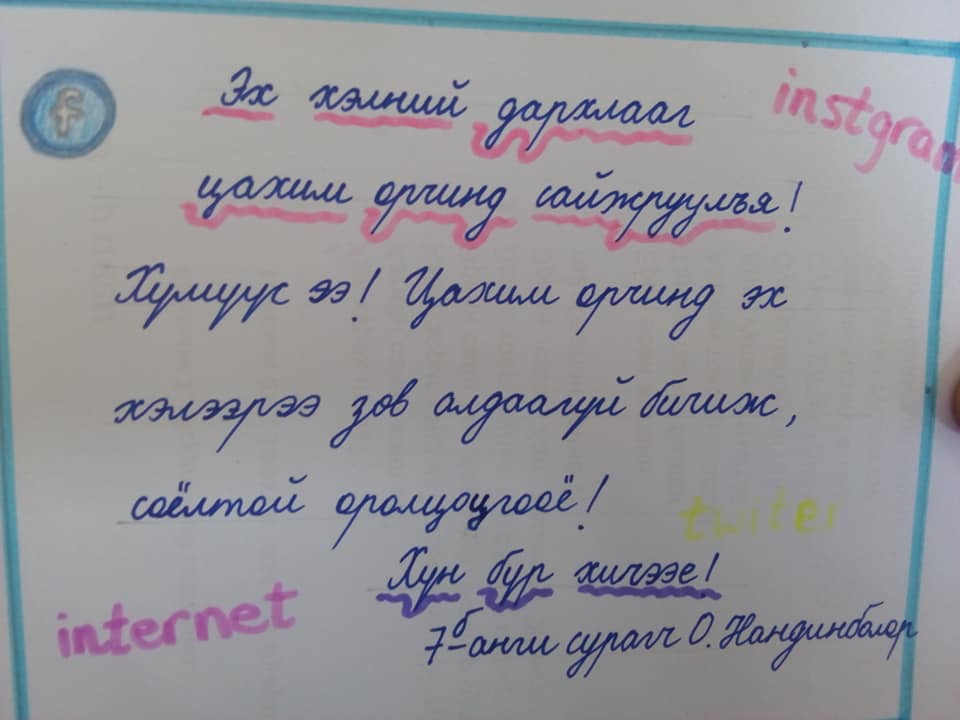 f
Эх хэлний дархлааг
instgram
цахим орчинд сайжруулъя!
Хүмүүс ээ! Цахим орчинд эх
хэлээрээ зөв алдаагүй бичиж,
соёлтой оролцоцгооё!
twiter
Хүн бүр хичээе!
internet
7б-анги сурагч О. Нандинболор